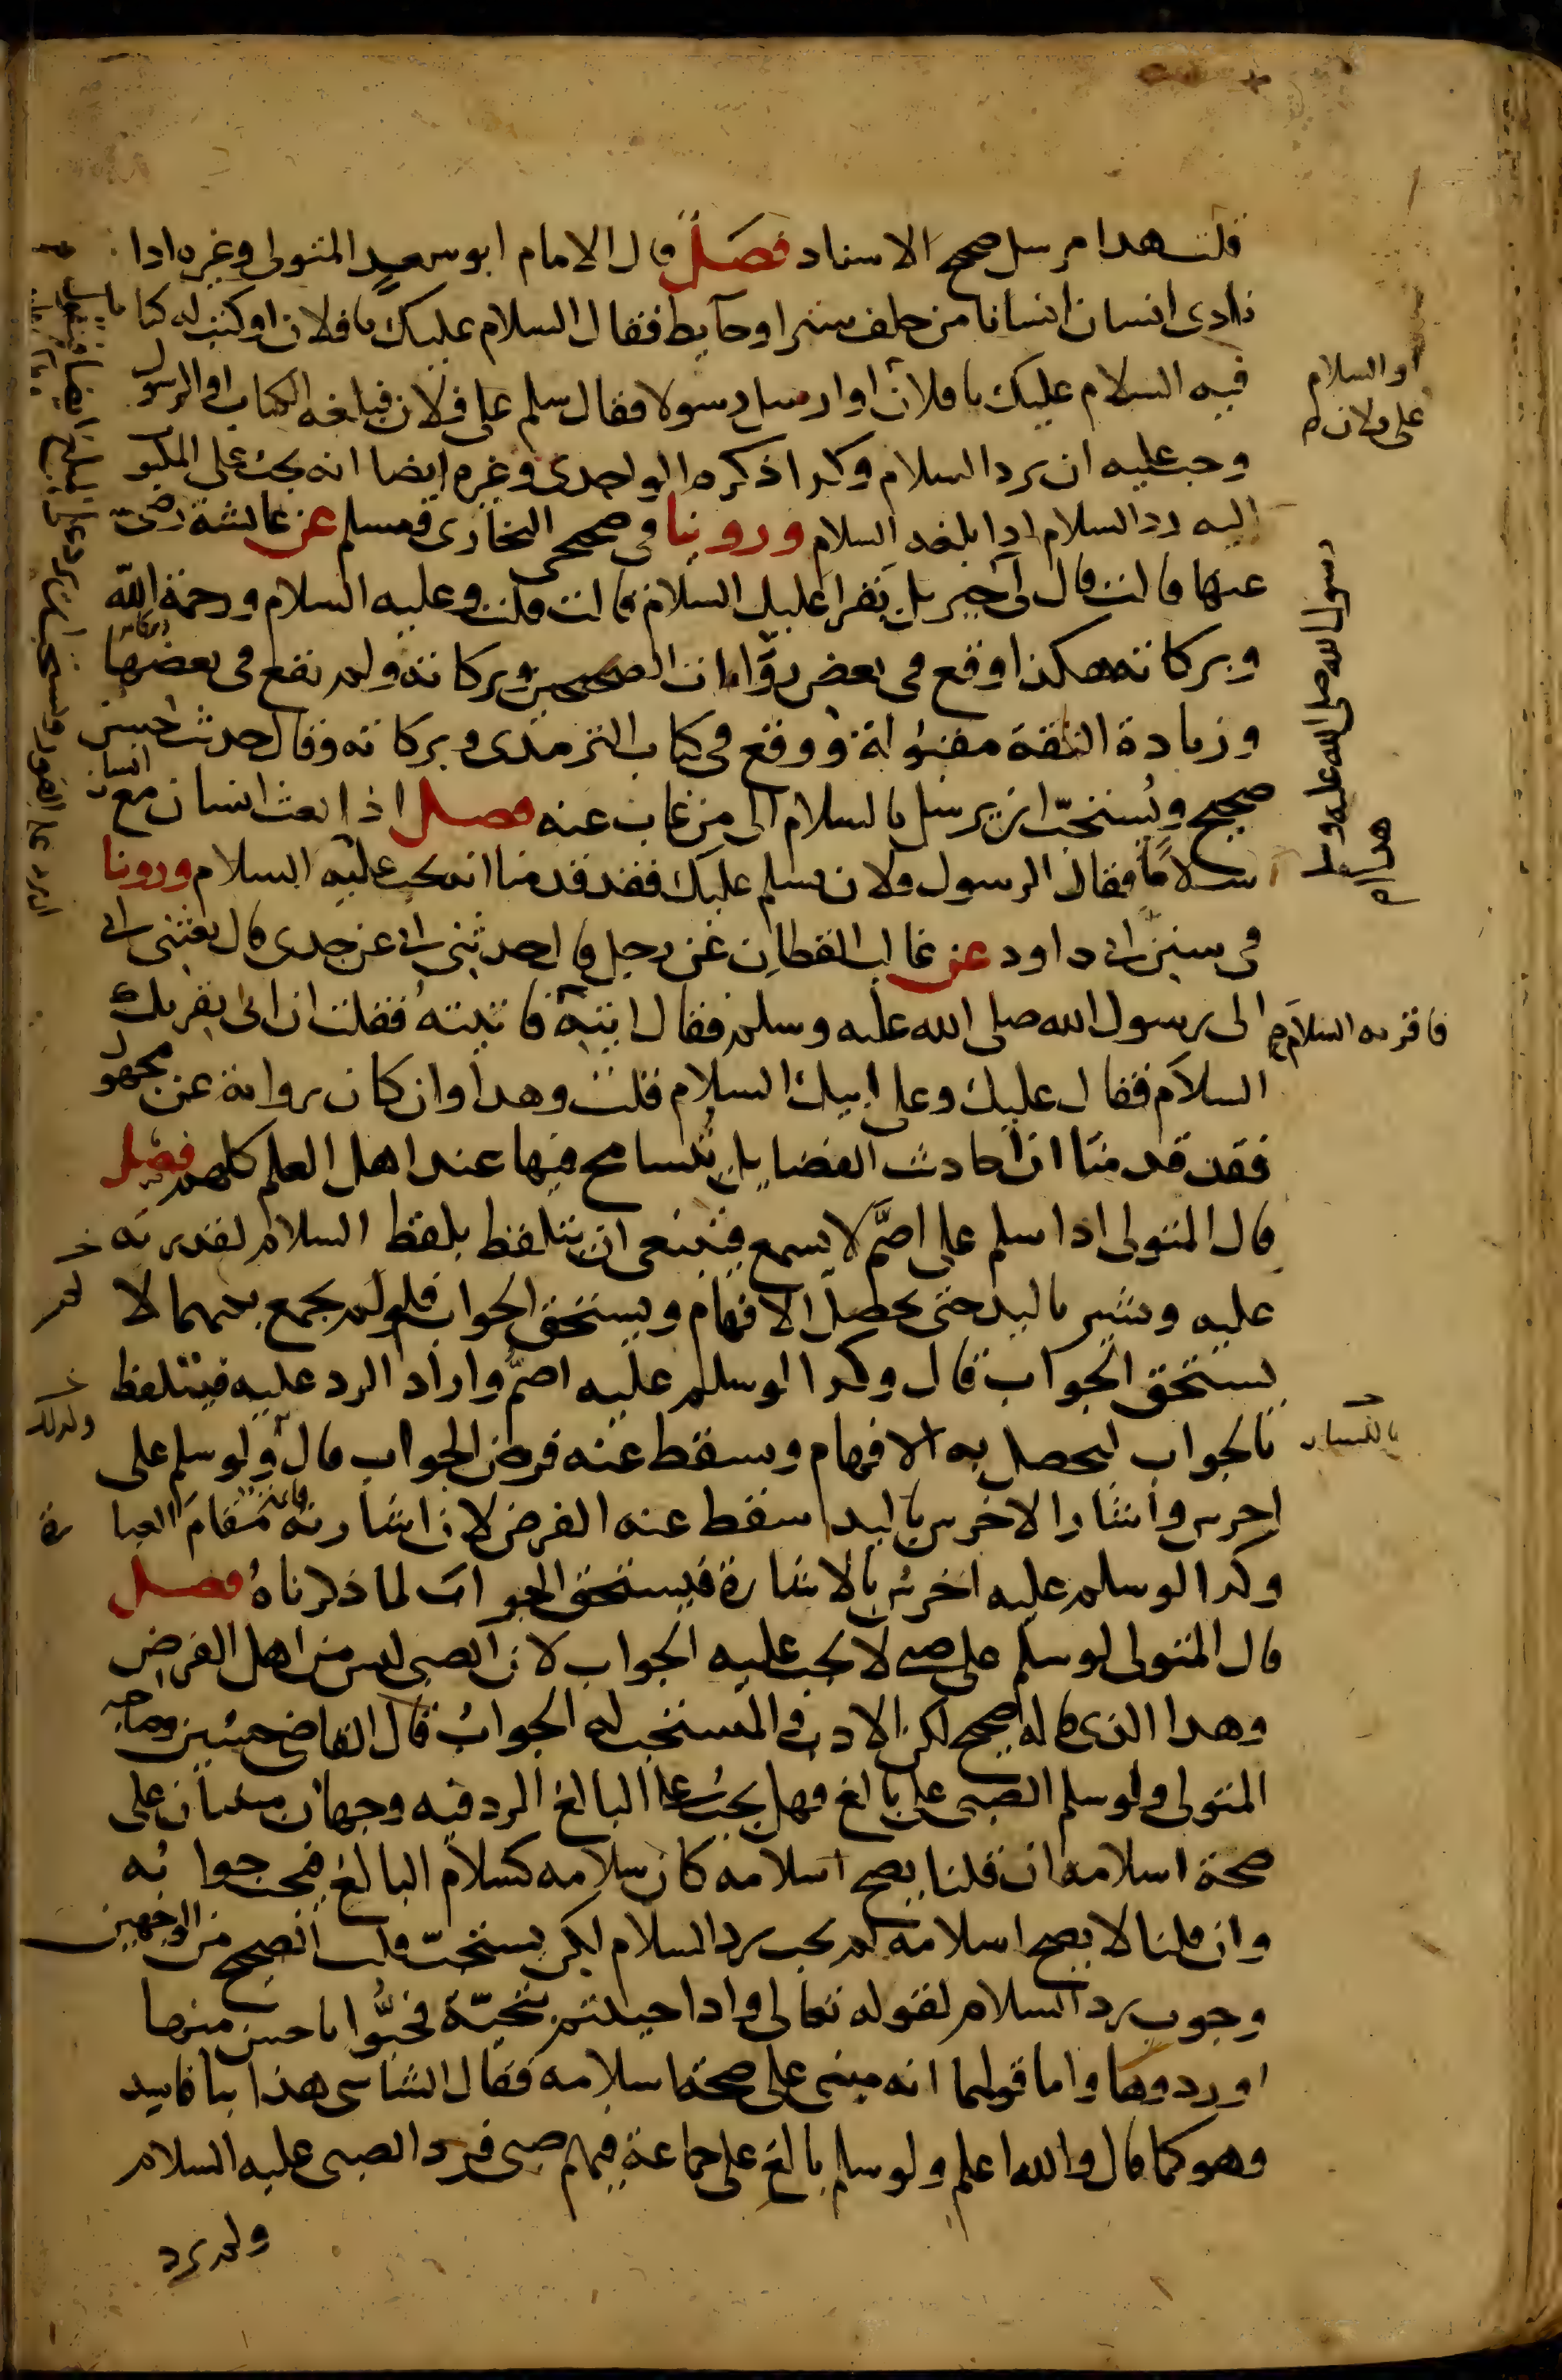 قلت هذا مرسل صحيح الاسناد فصل قال الامام ابو سعد المتولى وغيره اذا
نادى انسان انسانا من خلف ستر او حآيط فقال السلام عليك يا فلان او كتب له كتابا
فيه السلام عليك يا فلان او ارسل رسولا فقال سلم على فلان فبلغه الكتاب او الرسول
او السلام
على فلان م
وجب عليه ان يرد السلام وكذا ذكره الواحدى وغيره ايضا انه يجب على المكتوب
اليه رد السلام اذا بلغه السلام وروينا فى صحيحى البخارى ومسلم عن عايشة رضى الله
عنها قالت قال لى جبريل يقرا عليك السلام قالت قلت وعليه السلام ورحمة الله
رسول الله صلى الله عليه وسلم
هذا
وبركاته هكذا وقع فى بعض روايات الصحيحين وبركاته ولم تقع فى بعضها
وزيادة الثقة مقبولة ووقع فى كتاب الترمذى وبركاته وقال حديث حسن
صحيح ويستحب ان يرسل بالسلام الى من غاب عنه فصل اذا بعث انسان مع انسان
سلاما فقال الرسول فلان يسلم عليك فقد قدمنا انه يجب عليه السلام وروينا
فى سنن ابى داود عن غالب القطان عن رجل قال حدثنى ابى عن جدى قال بعثنى ابى
الى رسول الله صلى الله عليه وسلم فقال ايته فاتيته فقلت ان ابى يقريك
فاقريه السلام
السلام فقال عليك وعلى ابيك السلام قلت وهذا وان كان رواية عن مجهول
فقد قدمنا ان احاديث الفضايل يتسامح فيها عند اهل العلم كلهم فصل
قال المتولى اذا سلم على اصم لا يسمع فينبغى ان يتلفظ بلفظ السلام لقدرته
عليه ويشير باليد حتى يحصل الافهام ويستحق الجواب فلو لم يجمع بينهما لا
يستحق الجواب قال وكذا لو سلم عليه اصم واراد الرد عليه فيتلفظ
باللسان
بالجواب ليحصل به الافهام ويسقط عنه فرض الجواب قال ولو سلم على
اخرس واشار الاخرس باليد سقط عنه الفرض لان اشارته قائمة مقام العبارة
وكذا لو سلم عليه اخرس بالاشارة فيستحق الجواب لما ذكرناه فصل
قال المتولى لو سلم على صبى لا يجب عليه الجواب لان الصبى ليس من اهل الفرض
وهذا الذى قاله صحيح لكن الادب والمستحب له الجواب قال القاضى حسين وصاحبه
المتولى ولو سلم الصبى على بالغ فهل يجب على البالغ الرد فيه وجهان مبنيان على
صحة اسلامه ان قلنا يصح اسلامه كان سلامه كسلام البالغ فيجب جوابه
وان قلنا لا يصح اسلامه لم يجب رد السلام لكن يستحب قلت الصحيح من الوجهين
وجوب رد السلام لقوله تعالى واذا حييتم بتحية فحيوا باحسن منها
او ردوها واما قولهما انه مبنى على صحة اسلامه فقال الشاشى هذا بنا فاسد
وهو كما قال والله اعلم ولو سلم بالغ على جماعة فيهم صبى فرد الصبى عليه السلام
ولم يرد